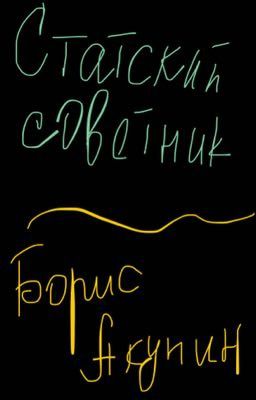 Статский
советник
Борис
Акунин